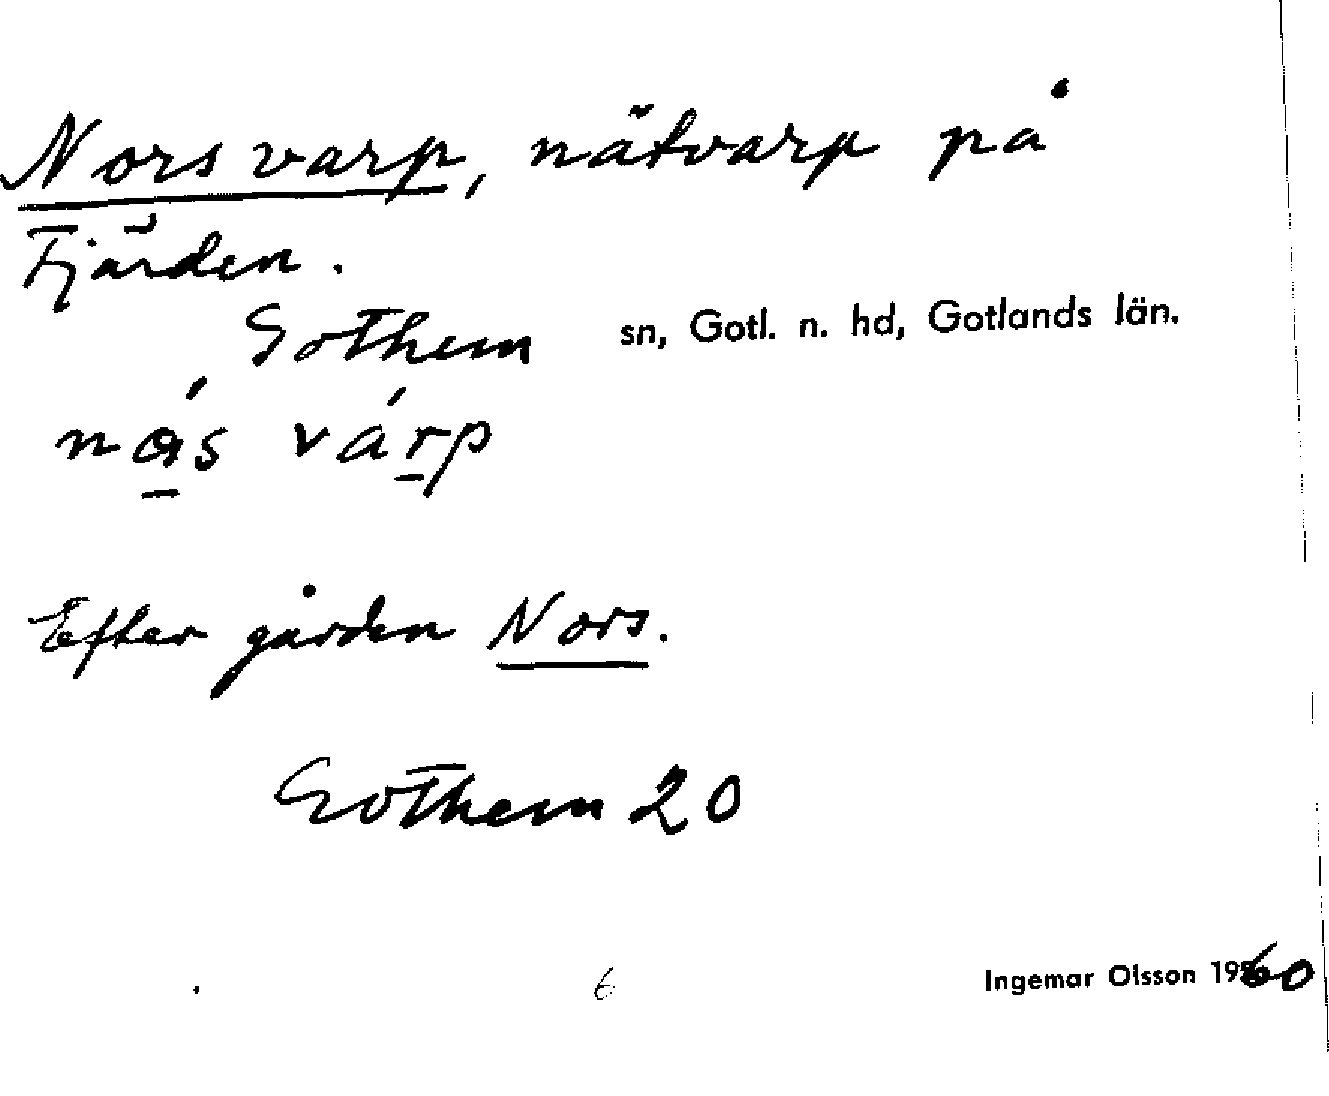 Norsvarp, nätvarp på
Fjärden.
Gothem sn, Gotl. n. hd, Gotlands län.
nás várp
Efter gården Nors.
Gothem 20
6 Ingemar Olsson 1960